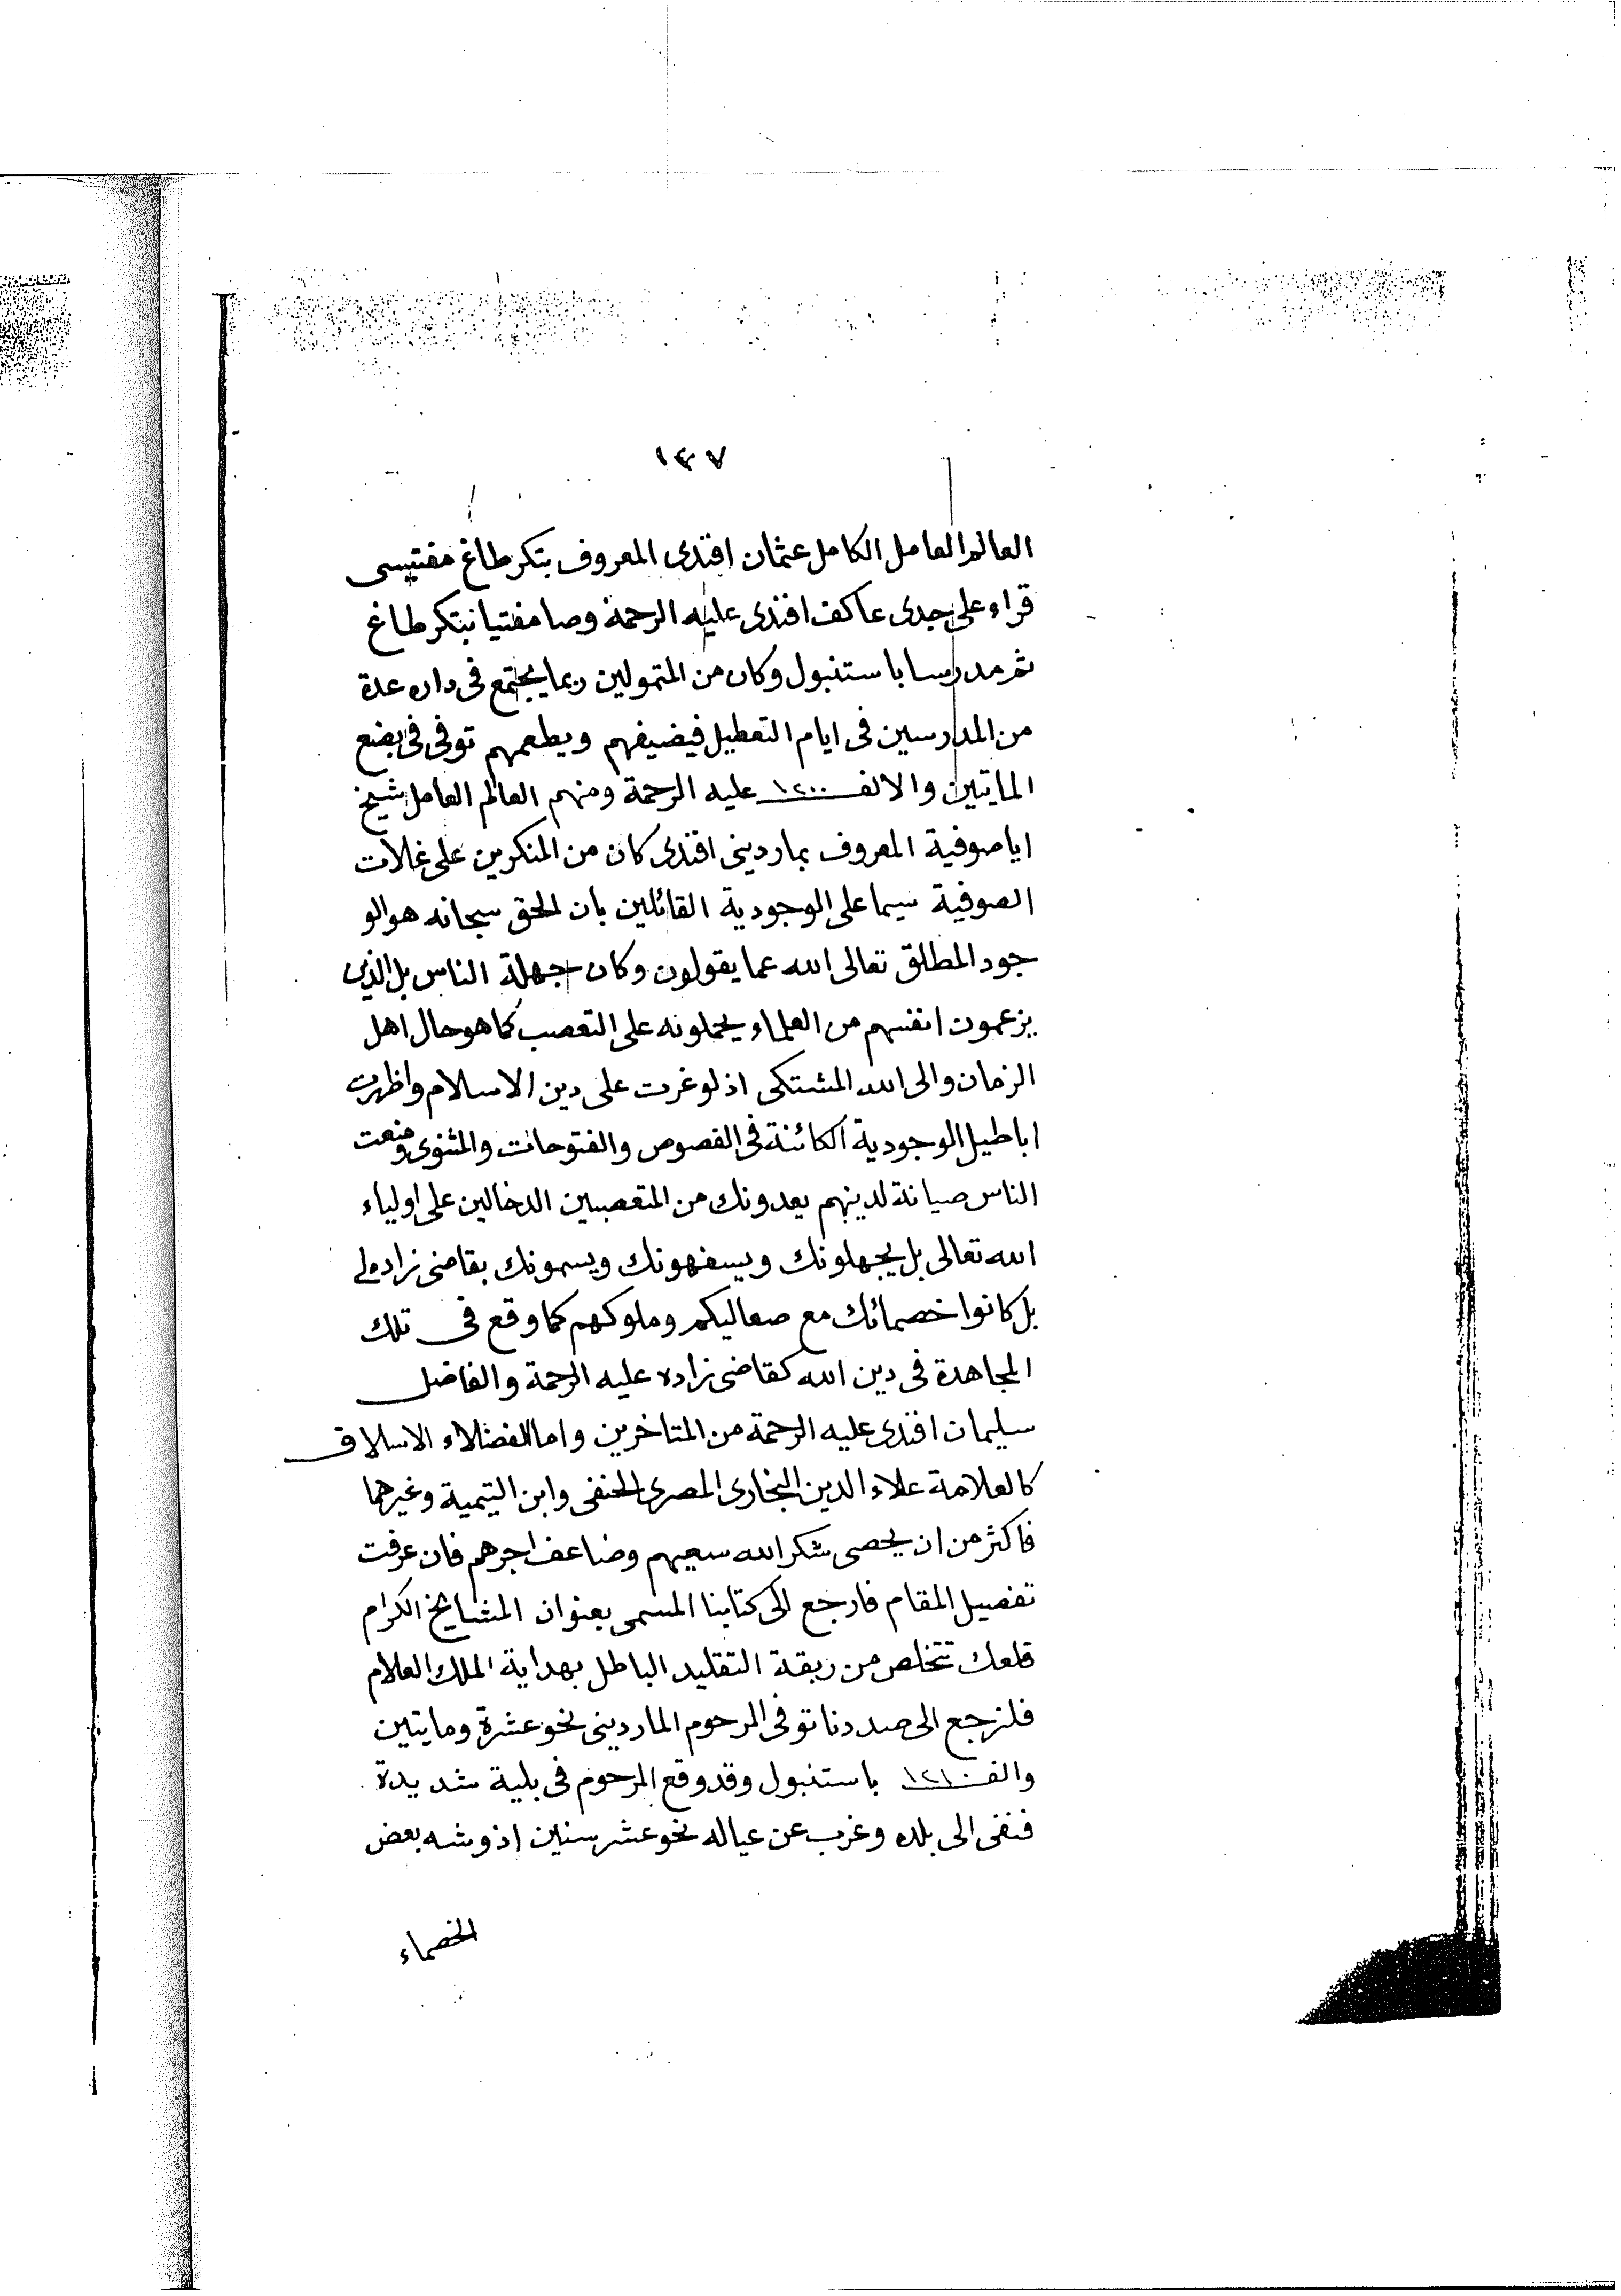 ١٤٧
العالم العامل الكامل عثمان افندى المعروف بتكرطاغ مفتيسى
قراء على جدى عاكف افندى عليه الرحمة وصا مفتيا بتكرطاغ
ثم مدرسا باستنبول وكان من المتمولين ربما يجتمع فى داره عدة
من المدرسين فى ايام التعطيل فيضيفهم ويطعمهم توفى فى بضع
الماتين والالف ١٢٠٠ عليه الرحمة ومنهم العالم العامل شيخ
اياصوفية المعروف بماردينى افندى كان من المنكرين على غلات
الصوفية سيما على الوجودية القائلين بان الحق سبحانه هو الو
جود المطلق تعالى الله عما يقولون وكان جهلة الناس بل الذين
يزعمون انفسهم من العلماء يحملونه على التعصب كما هو حال اهل
الزمان والى الله المشتكى اذ لو غرت على دين الاسلام واظهرت
اباطيل الوجودية الكائنة فى الفصوص والفتوحات والمثنوى ومنعت
الناس صيانة لدينهم يعدونك من المتعصبين الدخالين على اولياء
الله تعالى بل يجهلونك ويسفهونك ويسمونك بقاضى زاده لى
بل كانوا خصمائك مع صعاليكم وملوكهم كما وقع فى تلك
المجاهدة فى دين الله كقاضى زاده عليه الرحمة والفاضل
سليمان افندى عليه الرحمة من المتاخرين واما الفضلاء الاسلاف
كالعلامة علاء الدين البخارى المصرى الحنفى وابن التيمية وغيرهما
فاكثر من ان يحصى شكر الله سعيهم وضاعف اجرهم فان عرفت
تفصيل المقام فارجع الى كتابنا المسمى بعنوان المشايخ الكرام
فلعلك تتخلص من ربقة التقليد الباطل بهداية الملك العلام
فلنرجع الى صددنا توفى المرحوم الماردينى نحو عشرة وماتين
والف ١٢١٠ باستنبول وقد وقع المرحوم فى بلية شديدة
فنفى الى بلده وغرب عن عياله نحو عشر سنين اذ وشه بعض
الخصماء